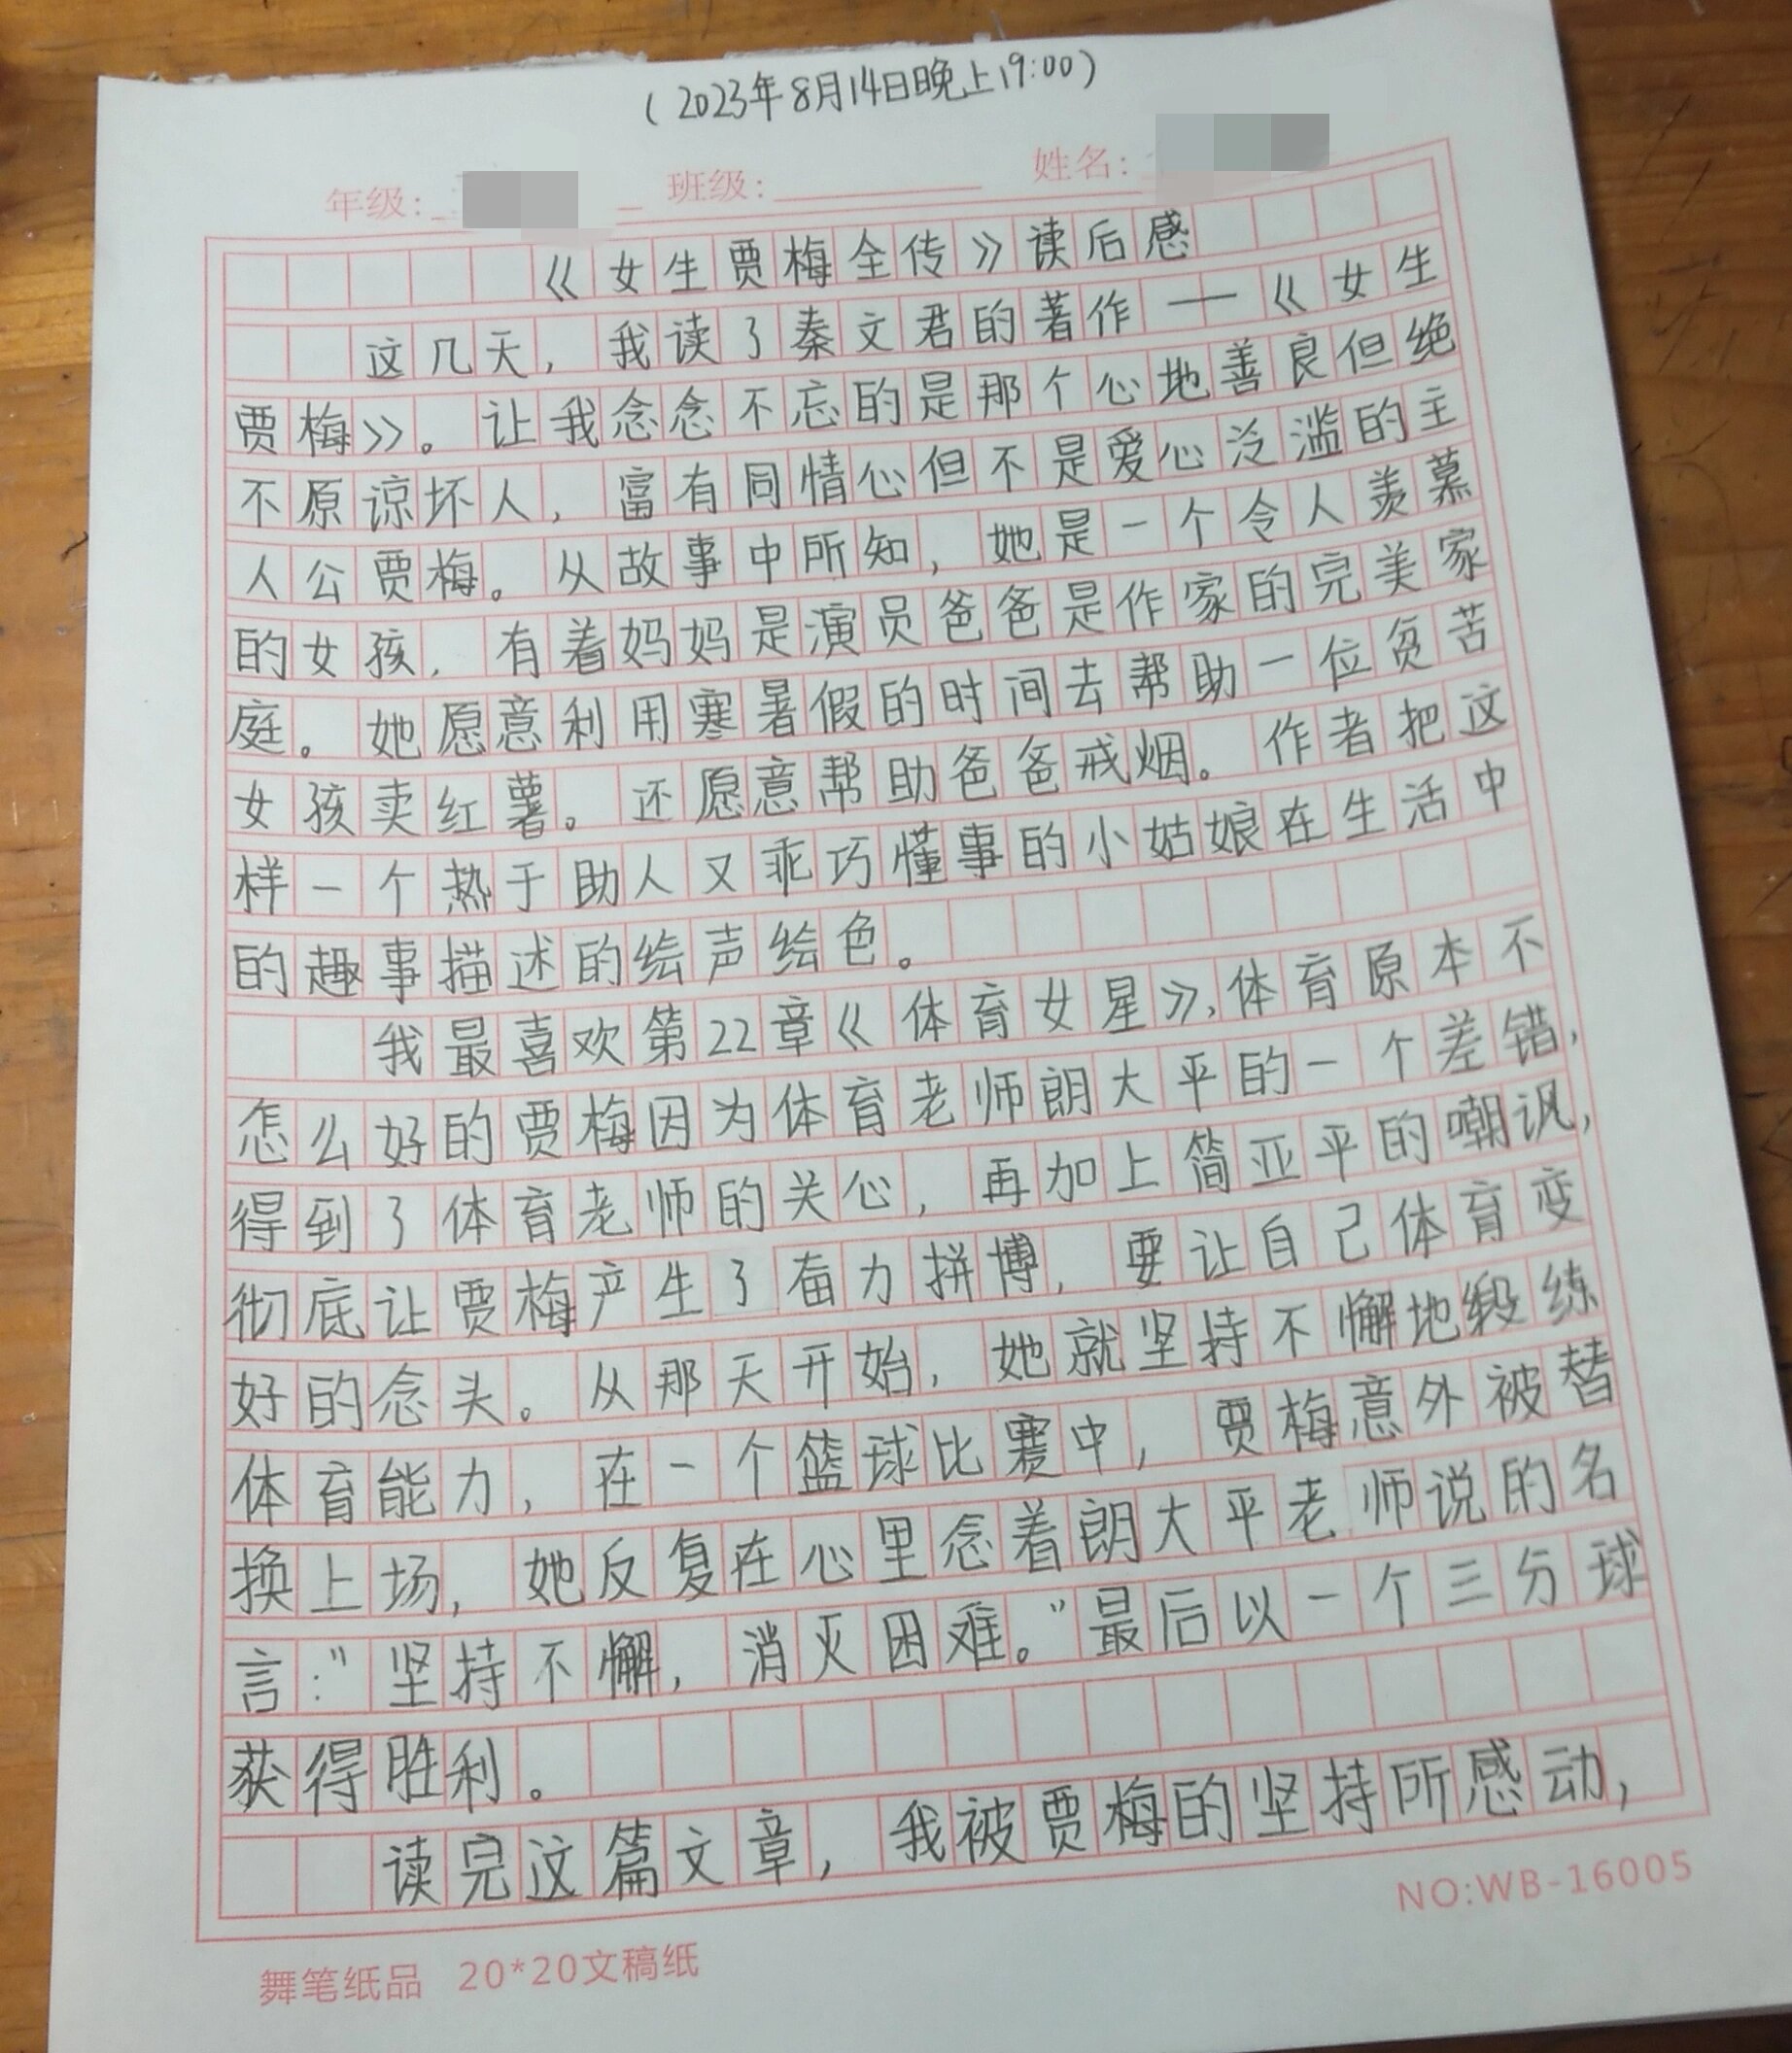 (2023年8月14日晚上19:00)
年级: 班级: 姓名:
《女生贾梅全传》读后感
这几天，我读了秦文君的著作——《女生
贾梅》。让我念念不忘的是那个心地善良但绝
不原谅坏人，富有同情心但不是爱心泛滥的主
人公贾梅。从故事中所知，她是一个令人羡慕
的女孩，有着妈妈是演员爸爸是作家的完美家
庭。她愿意利用寒暑假的时间去帮助一位贫苦
女孩卖红薯。还愿意帮助爸爸戒烟。作者把这
样一个热于助人又乖巧懂事的小姑娘在生活中
的趣事描述的绘声绘色。
我最喜欢第22章《体育女星》，体育原本不
怎么好的贾梅因为体育老师朗大平的一个差错，
得到了体育老师的关心，再加上简亚平的嘲讽，
彻底让贾梅产生了奋力拼博，要让自己体育变
好的念头。从那天开始，她就坚持不懈地锻练
体育能力，在一个篮球比赛中，贾梅意外被替
换上场，她反复在心里念着朗大平老师说的名
言："坚持不懈，消灭困难。"最后以一个三分球
获得胜利。
读完这篇文章，我被贾梅的坚持所感动，
NO:WB-16005
舞笔纸品 20*20文稿纸